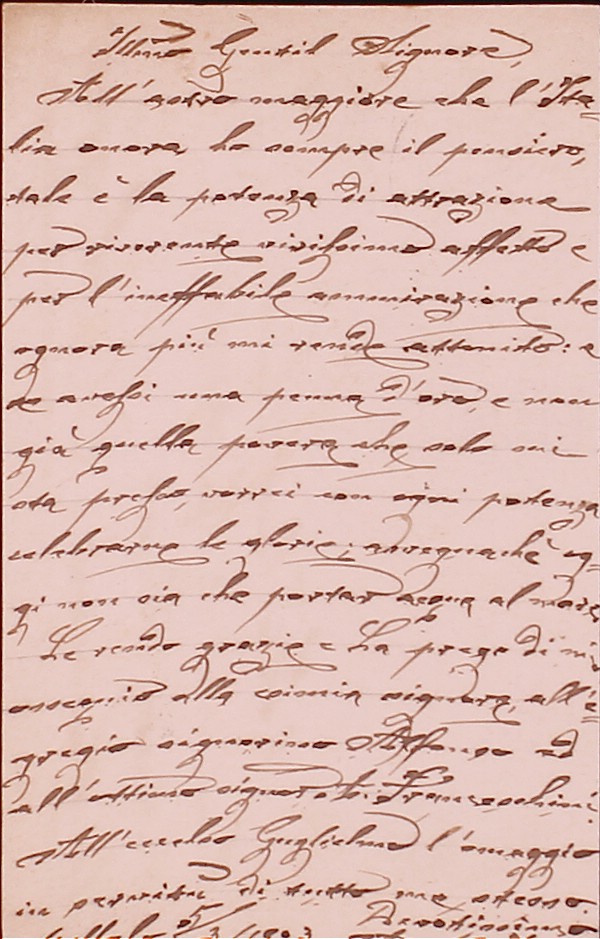 Illmo Gentil Signore,
All'astro maggiore che l'Ita-
lia onora, ho sempre il pensiero,
tale è la potenza di attrazione
per riverente vivissimo affetto e
per l'ineffabile ammirazione che
ognora più mi rende attonito: e
se avessi una penna d'oro, e non
già quella povera che solo mi
sta presso, vorrei con ogni potenza
celebrarne le glorie; avvegnachè og-
gi non sia che portar acqua al mare.
Le rendo grazie e La prego di
ossequio alla esimia signora, all'e-
gregio signorino Alfonso ed
all'ottimo signor Franceschini.
All'eccelso Guglielmo l'omaggio
in di tutto me stesso.
Devotissimo